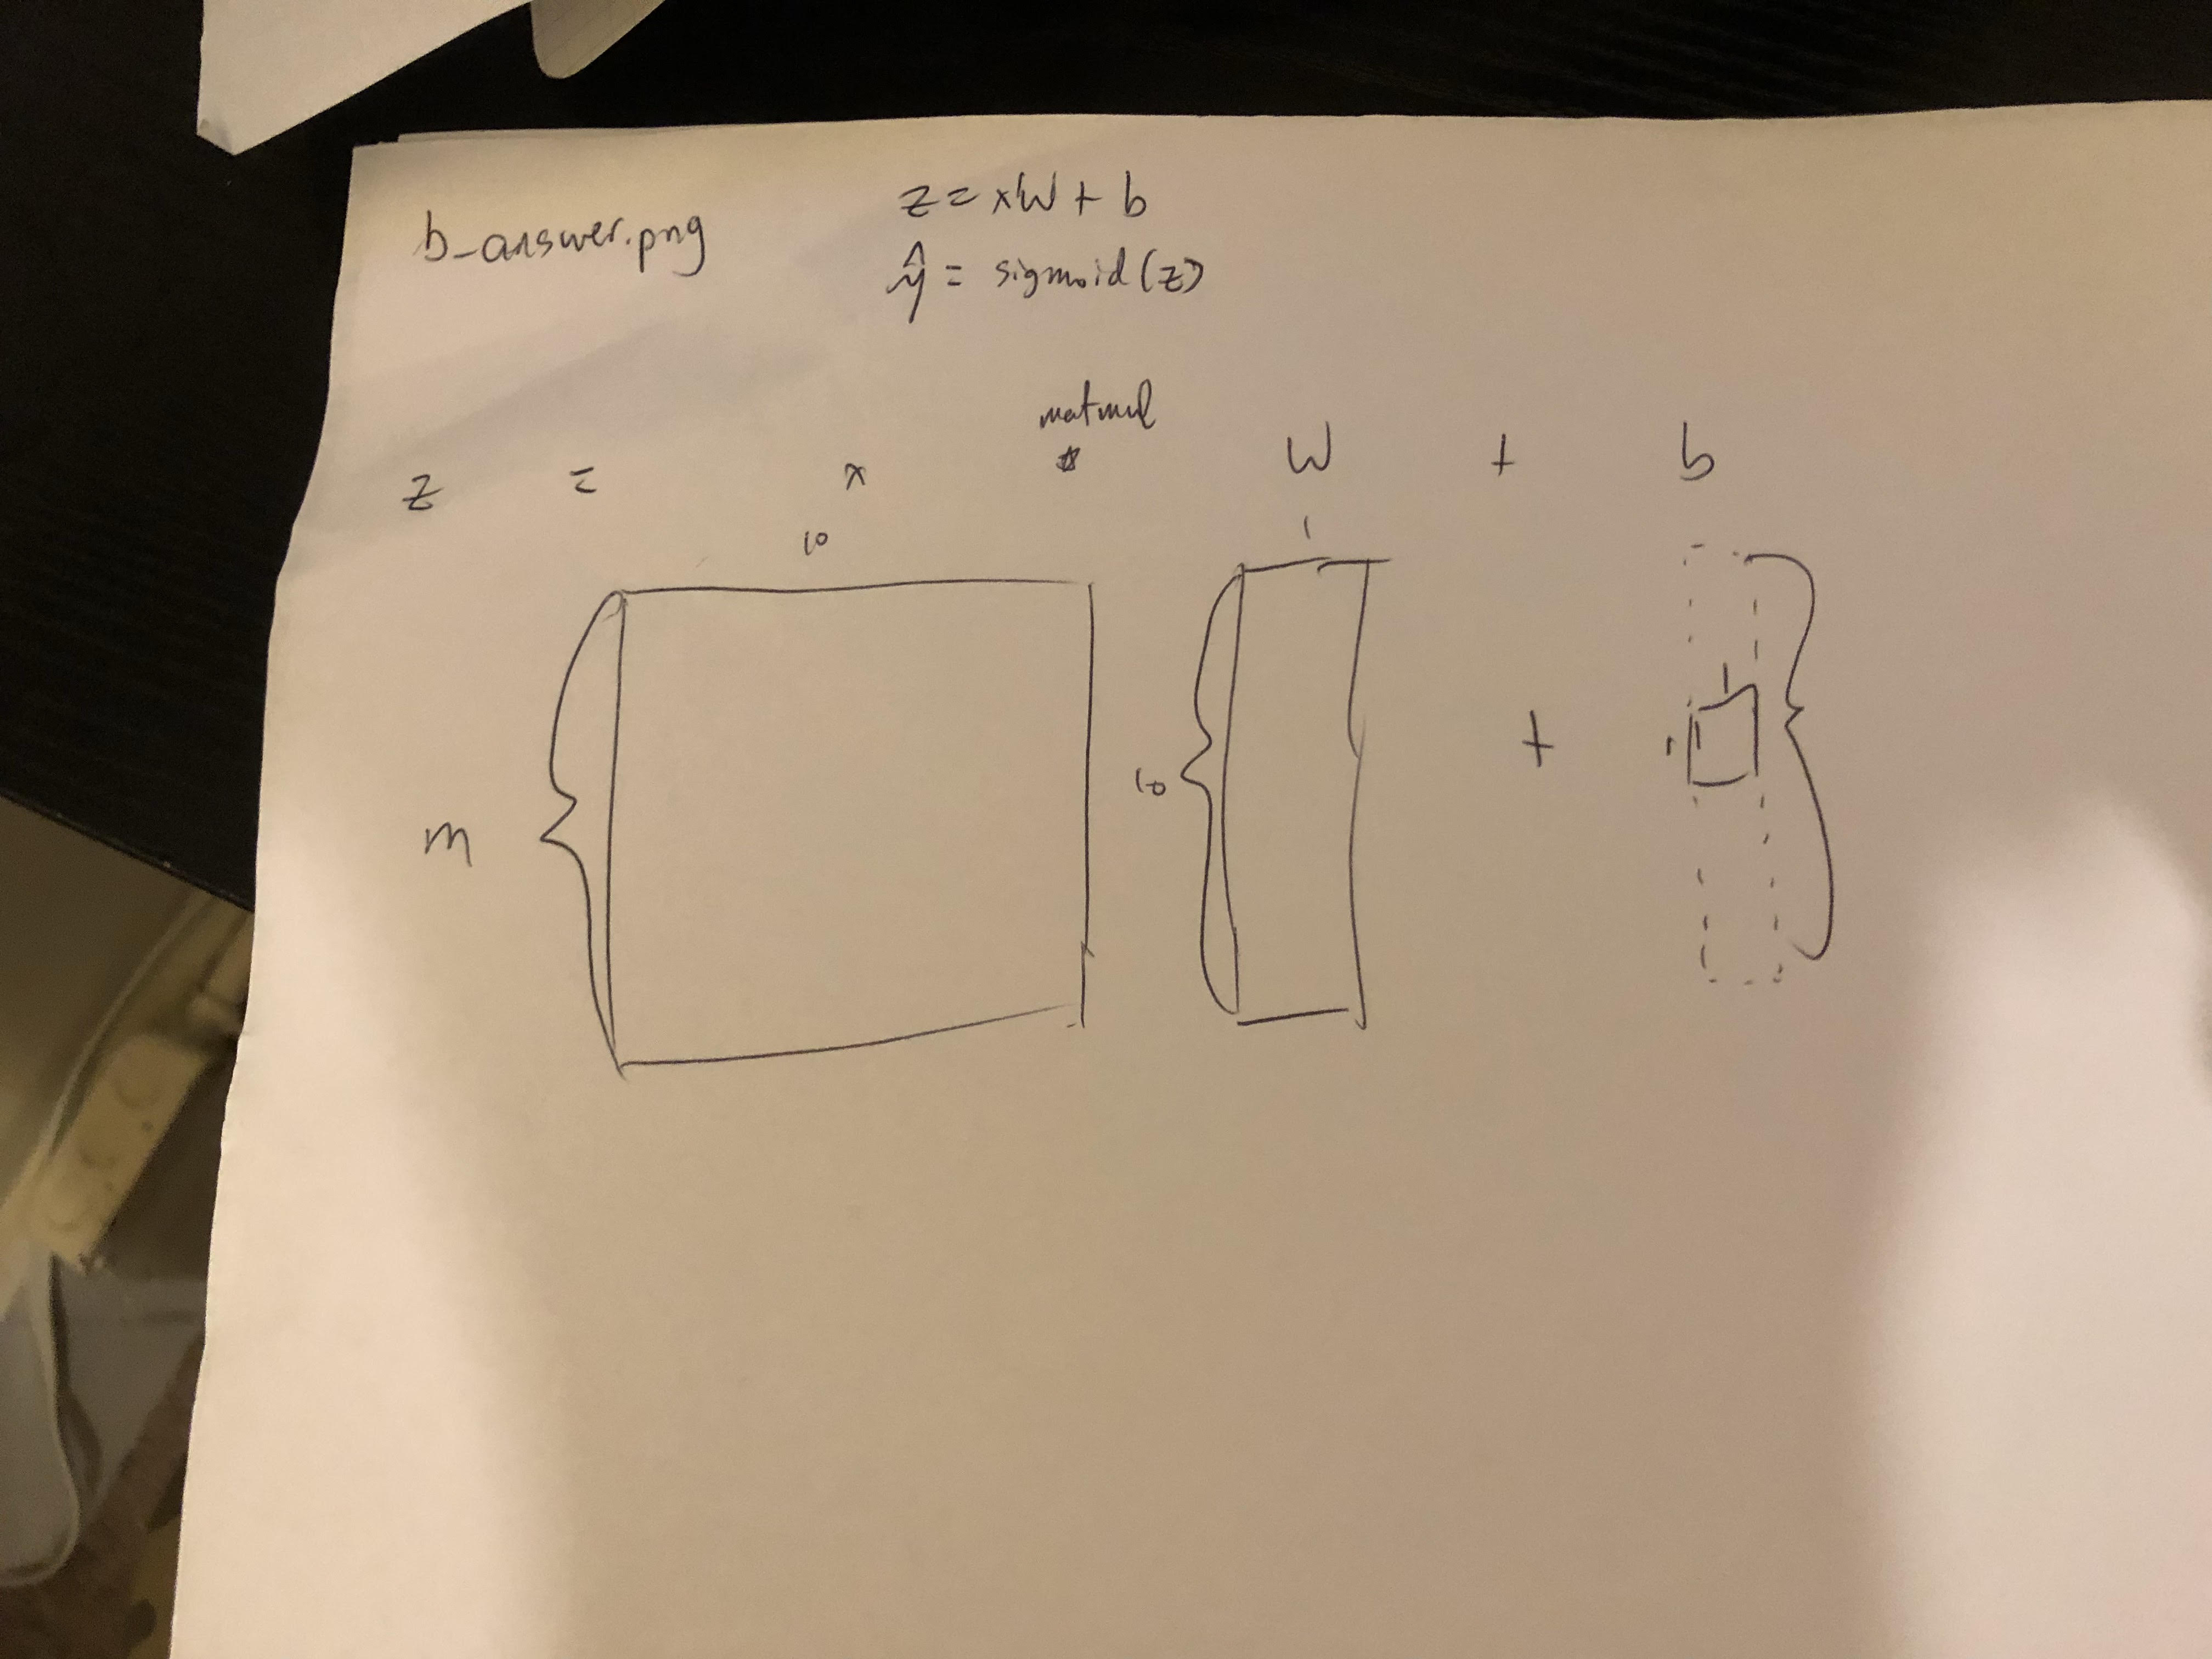 b_answer.png
z = xW + b
ŷ = sigmoid(z)
matmul
z = x * W + b
10 1
1
m 10 + 1